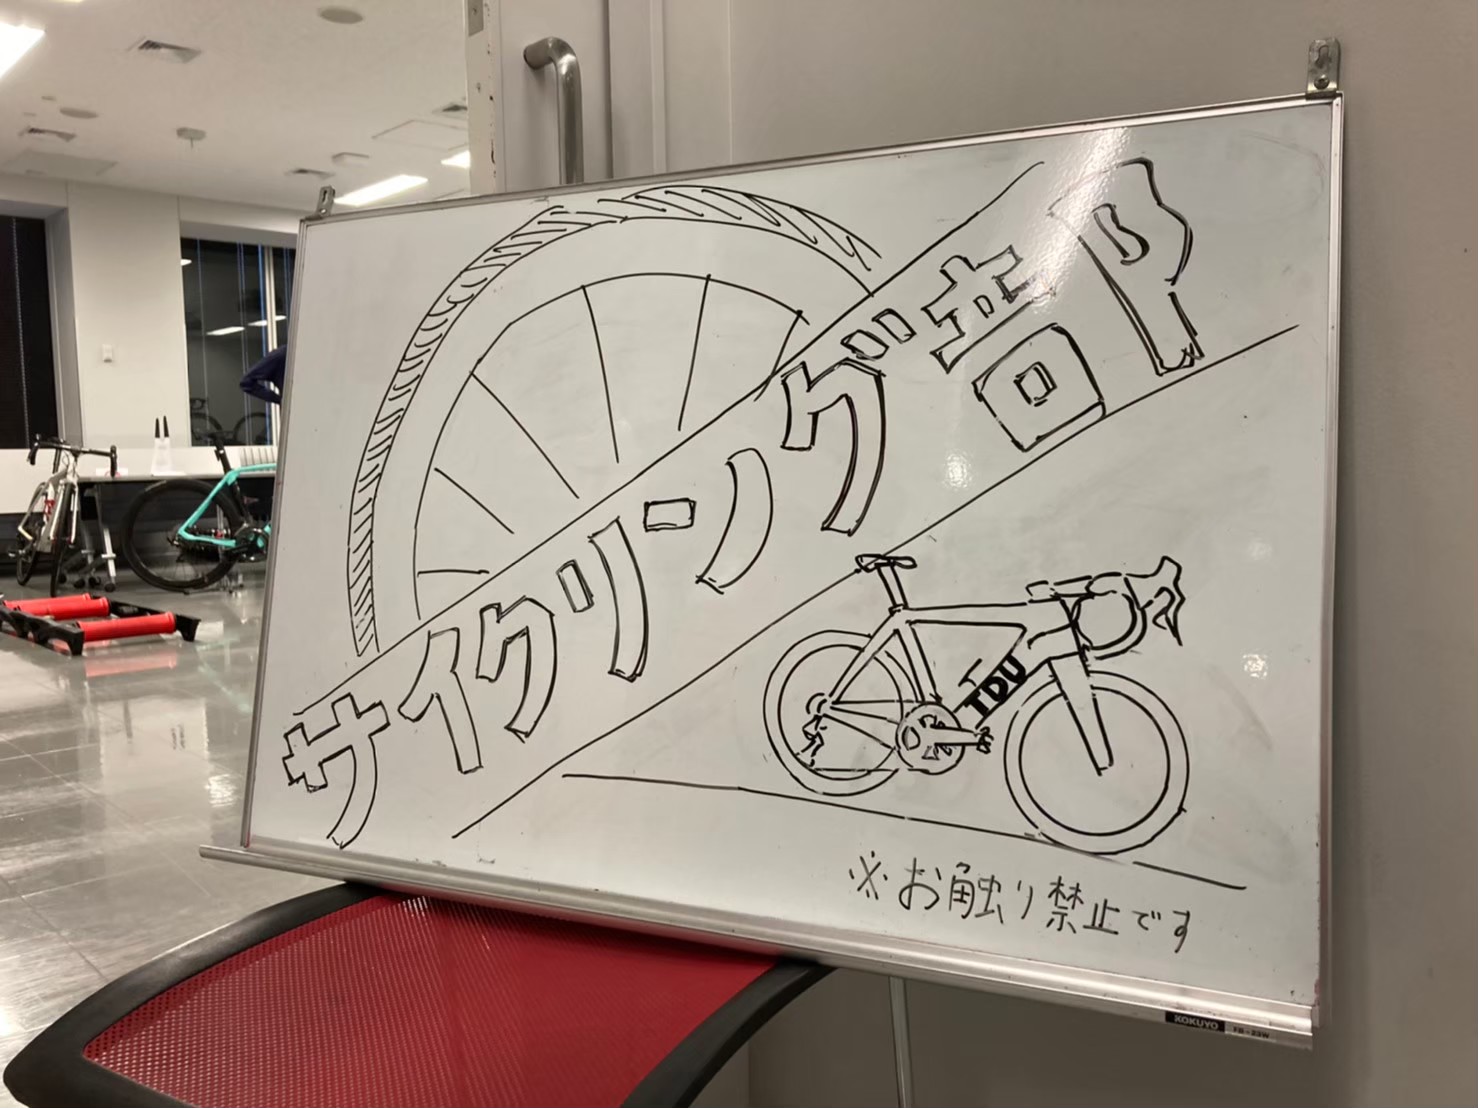 サイクリング部
TDU
※お触り禁止です
KOKUYO
FB-23W